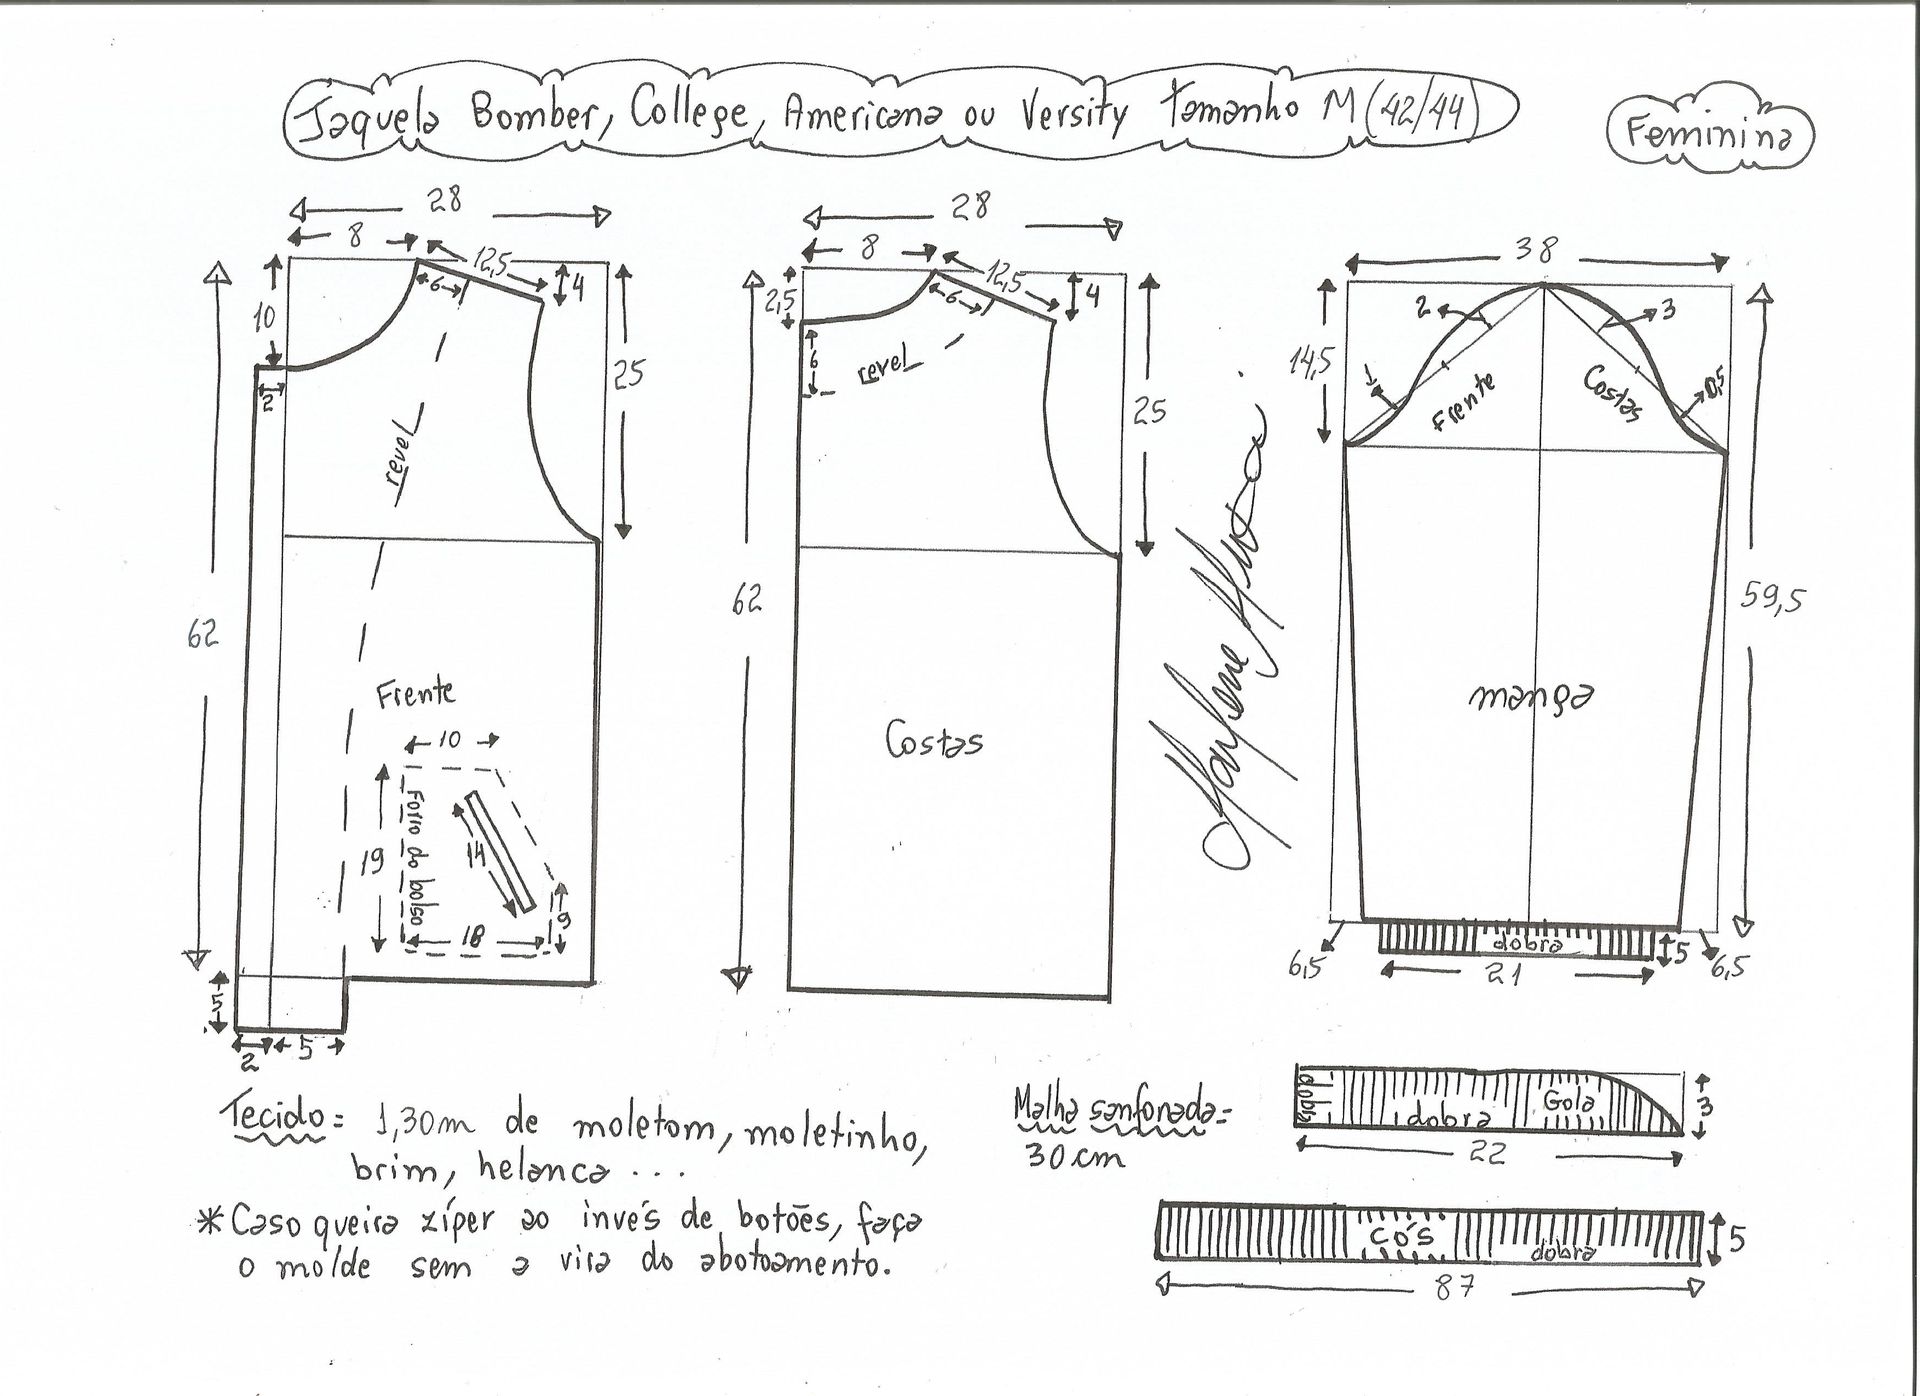 Jaqueta Bomber, College, Americana ou Versity Tamanho M (42/44)
Feminina
28
8
12,5
6
4
10
2
25
revel
62
Frente
10
19
Forro do bolso
14
9
18
5
2
5
28
8
12,5
6
4
2,5
6
revel
25
62
Costas
38
2
3
14,5
1
0,5
Frente
Costas
59,5
manga
dobra
5
6,5
21
6,5
Tecido = 1,30m de moletom, moletinho,
brim, helanca ...
* Caso queira zíper ao invés de botões, faça
o molde sem a vira do abotoamento.
Malha sanfonada =
30 cm
dobra
dobra
Gola
3
22
cós
dobra
5
87